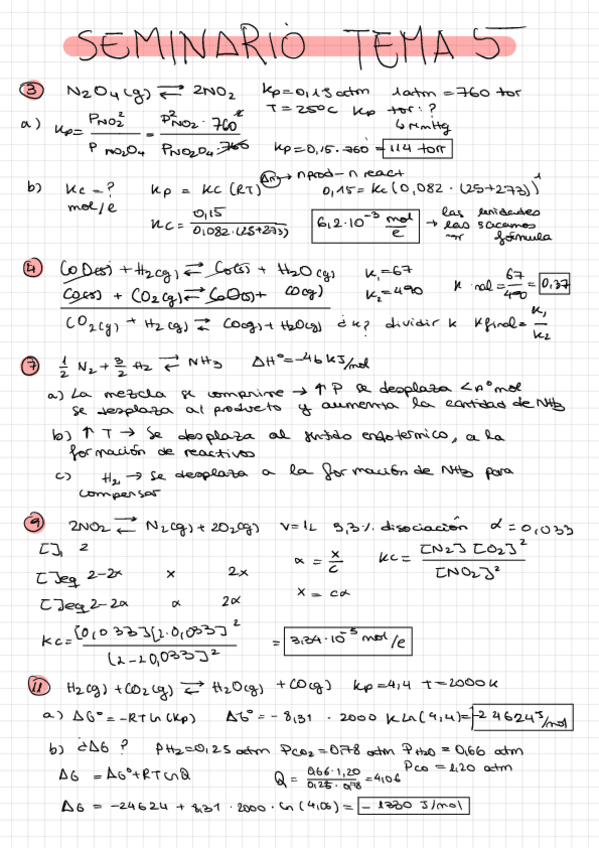 SEMINARIO TEMA 5
③ N₂O₄(g) ⇄ 2NO₂ Kp=0,15 atm 1atm = 760 tor
T = 25ºC Kp tor: ?
↳ mmHg
a) Kp= P NO₂² / P NO₂O₄ = P²NO₂ · 760² / PNO₂O₄ · 760 Kp=0,15·760 = 114 torr
b) Kc = ? Kp = Kc (RT)^Δn → n prod - n react
mol/e 0,15 = Kc (0,082 · (25+273))¹
Kc = 0,15 / 0,082·(25+273) 6,2·10⁻³ mol/e → las unidades las sacamos fórmula
④ CoO(s) + H₂(g) ⇄ Co(s) + H₂O(g) K₁=67 K final = 67/490 = 0,37
Co(s) + CO₂(g) ⇄ CoO(s) + CO(g) K₂=490
CO₂(g) + H₂(g) ⇄ CO(g) + H₂O(g) ¿K? dividir K Kfinal = K₁/K₂
⑦ 1/2 N₂ + 3/2 H₂ ⇄ NH₃ ΔHº=-46 KJ/mol
a) La mezcla se comprime → ↑ P se desplaza < nº mol
se desplaza al producto y aumenta la cantidad de NH₃
b) ↑ T → Se desplaza al sentido endotérmico, a la
formación de reactivos
c) H₂ → Se desplaza a la formación de NH₃ para
compensar
⑨ 2NO₂ ⇄ N₂(g) + 2O₂(g) V=1L 3,3% disociación α = 0,033
[ ]i 2
[ ]eq 2-2x x 2x α = x/c Kc = [N₂] [O₂]² / [NO₂]²
[ ]eq 2-2α α 2α x = cα
Kc = [0,033][2·0,033]² / (2-2·0,033]² = 3,34·10⁻⁵ mol/e
⑪ H₂(g) + CO₂(g) ⇄ H₂O(g) + CO(g) Kp=4,4 T=2000K
a) ΔGº = -RTLn(Kp) ΔGº = -8,31 · 2000 K Ln(4,4) = -24624 J/mol
b) ¿ΔG? PH₂=0,25 atm PCO₂=0,78 atm PH₂O = 0,66 atm
PCO = 1,20 atm
ΔG = ΔGº + RTLnQ Q = 0,66·1,20 / 0,25·0,78 = 4,06
ΔG = -24624 + 8,31 · 2000 · Ln (4,06) = -1330 J/mol